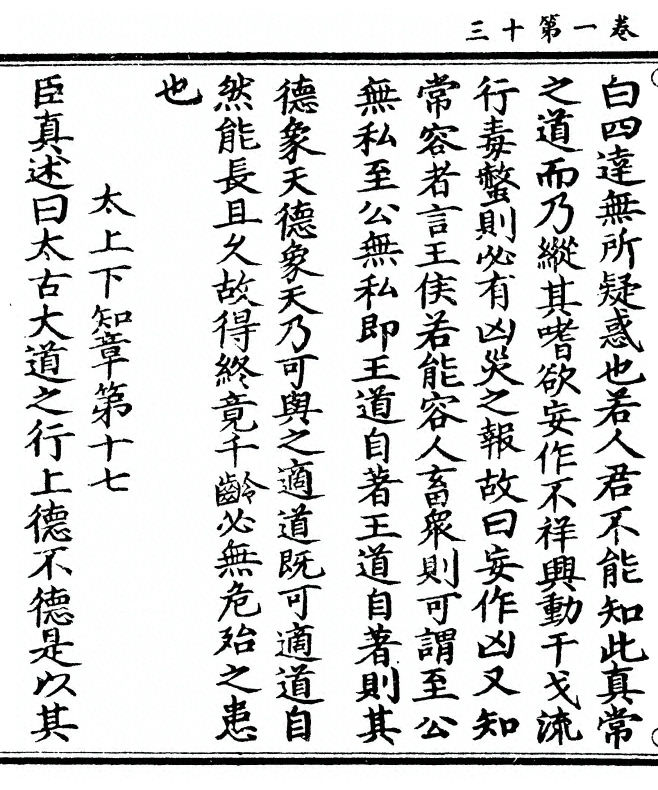 卷一第十三
白四達無所疑惑也若人君不能知此真常
之道而乃縱其嗜欲妄作不祥興動干戈流
行毒螫則必有凶災之報故曰妄作凶又知
常容者言王侯若能容人畜衆則可謂至公
無私至公無私即王道自著王道自著則其
德象天德象天乃可與之適道既可適道自
然能長且久故得終竟千齡必無危殆之患
也
太上下知章第十七
臣真述曰太古大道之行上德不德是以其